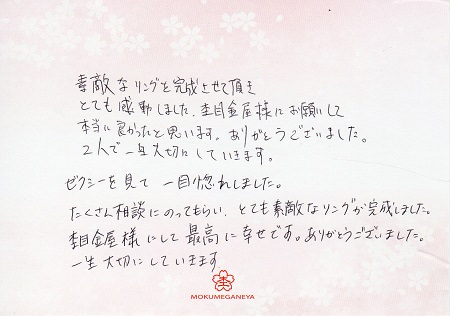 素敵なリングを完成させて頂き
とても感動しました。杢目金屋様にお願いして
本当に良かったと思います。ありがとうございました。
2人で一生大切にしていきます。
ゼクシーを見て 一目惚れしました。
たくさん相談にのってもらい、とても素敵なリングが完成しました。
杢目金屋様にして最高に幸せです。ありがとうございました。
一生大切にしていきます
杢
MOKUMEGANEYA